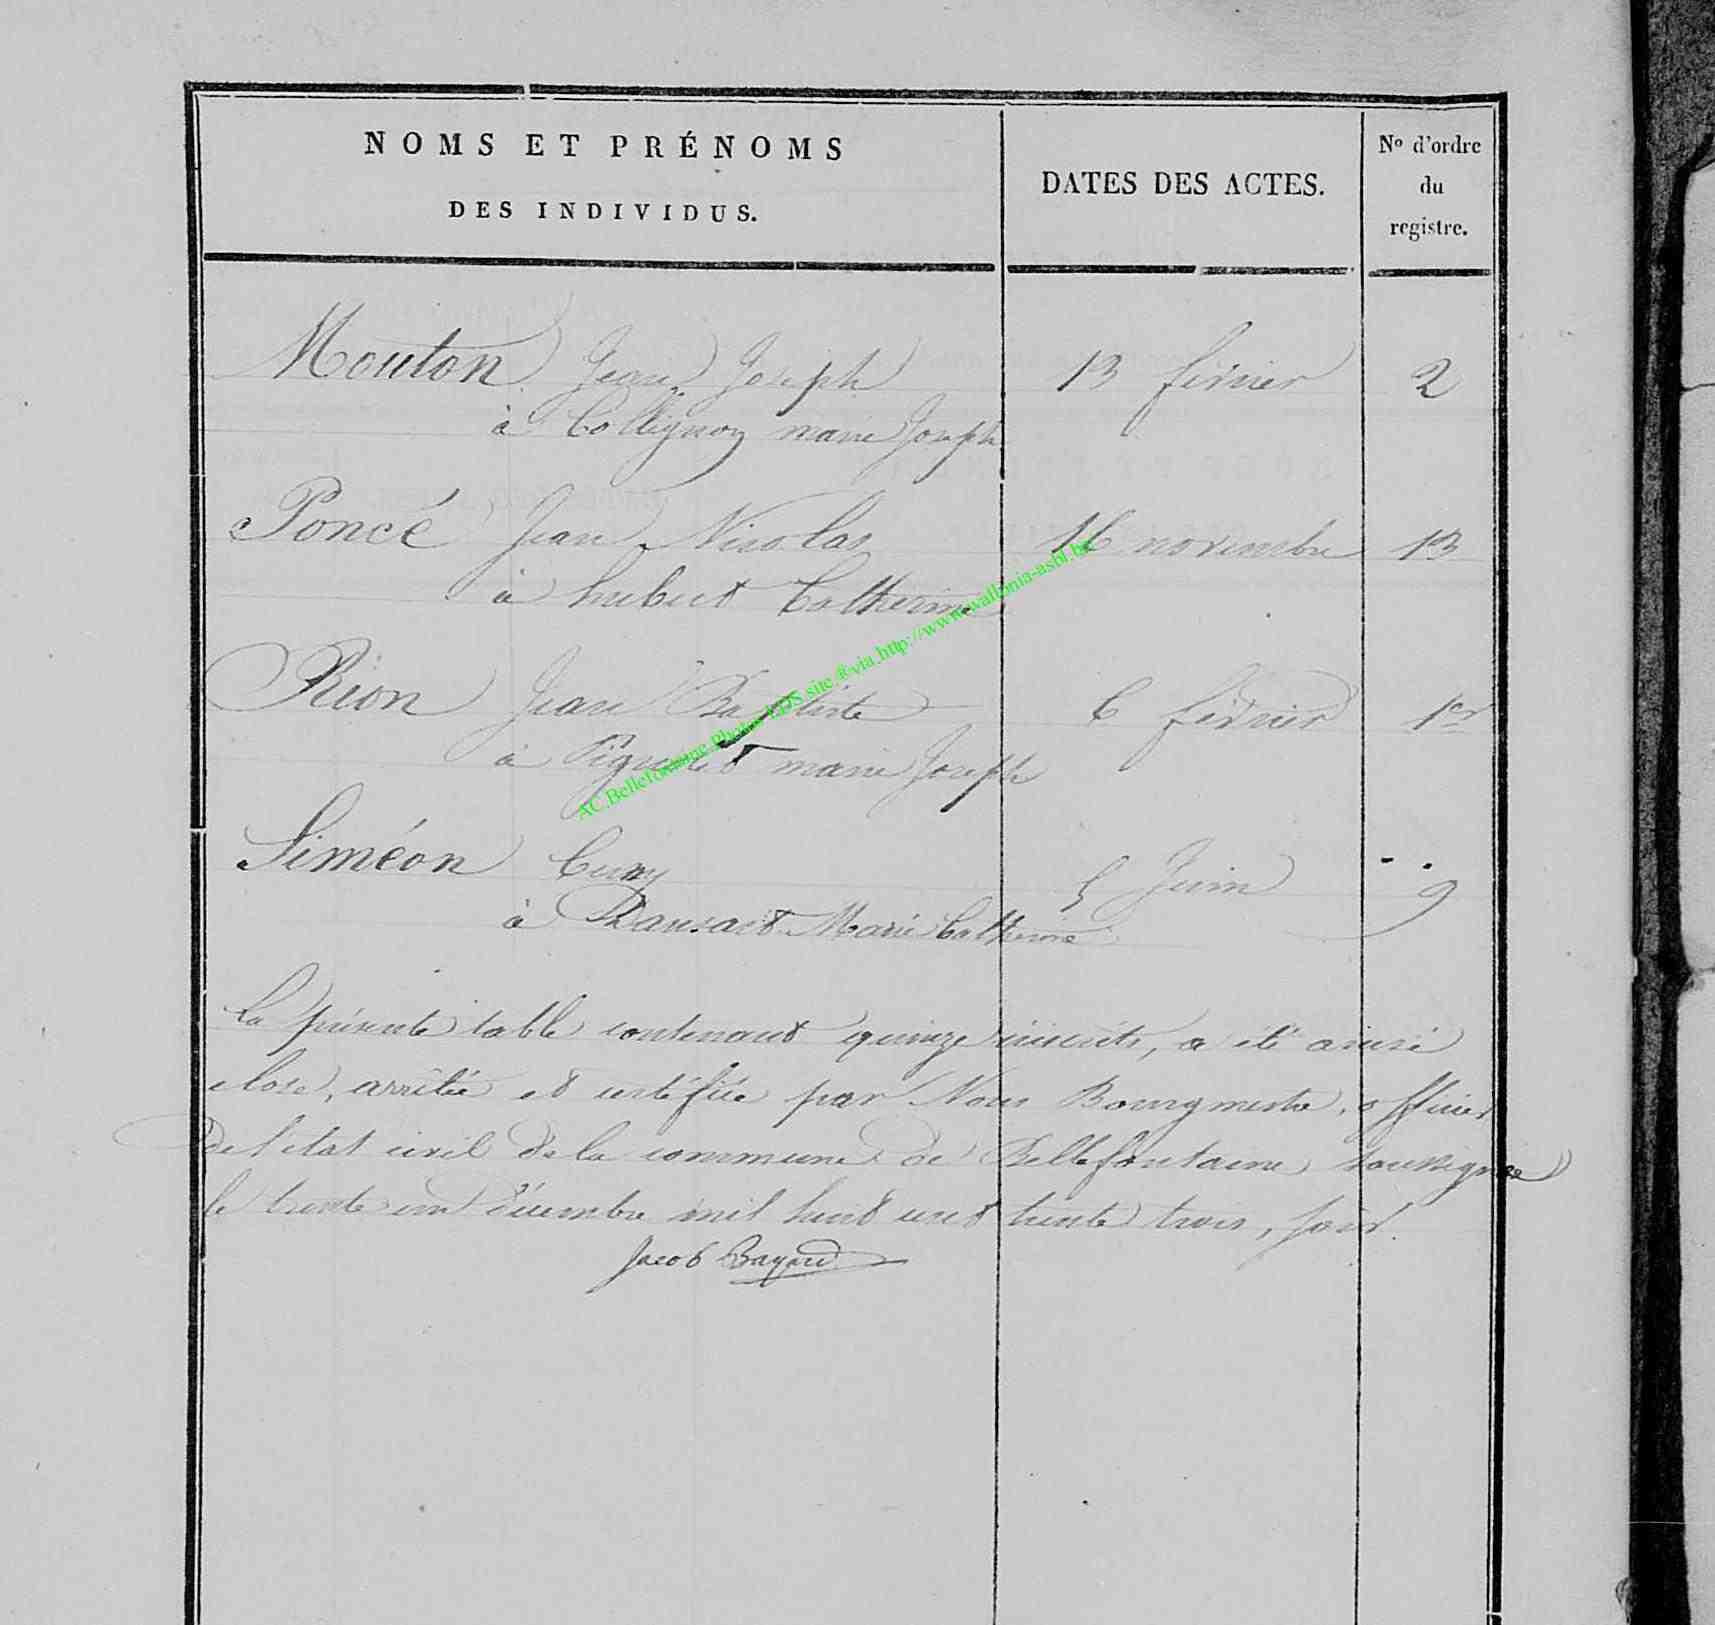 NOMS ET PRÉNOMS
DES INDIVIDUS.
DATES DES ACTES.
No d'ordre
du
registre.
Mouton Jean Joseph 13 février 2
à Collignon marie Joseph
Poncé Jean Nicolas 16 novembre 13
à hubert Catherine
Rion Jean Baptiste 6 février 1er
à marie Joseph
Siméon Cuny 5 Juin 9
à Dansart Marie Catherine
La présente table contenant quinze inscrits, a été ainsi
close, arrêtée et certifiée par Nous Bourgmestre, officier
de l'état civil de la commune de Bellefontaine soussigné
le trente un décembre mil huit cent trente trois, soir.
Jacob Bayard
AC.Bellefontaine.Photos LDS site ® via.http://www.wallonia-asbl.be